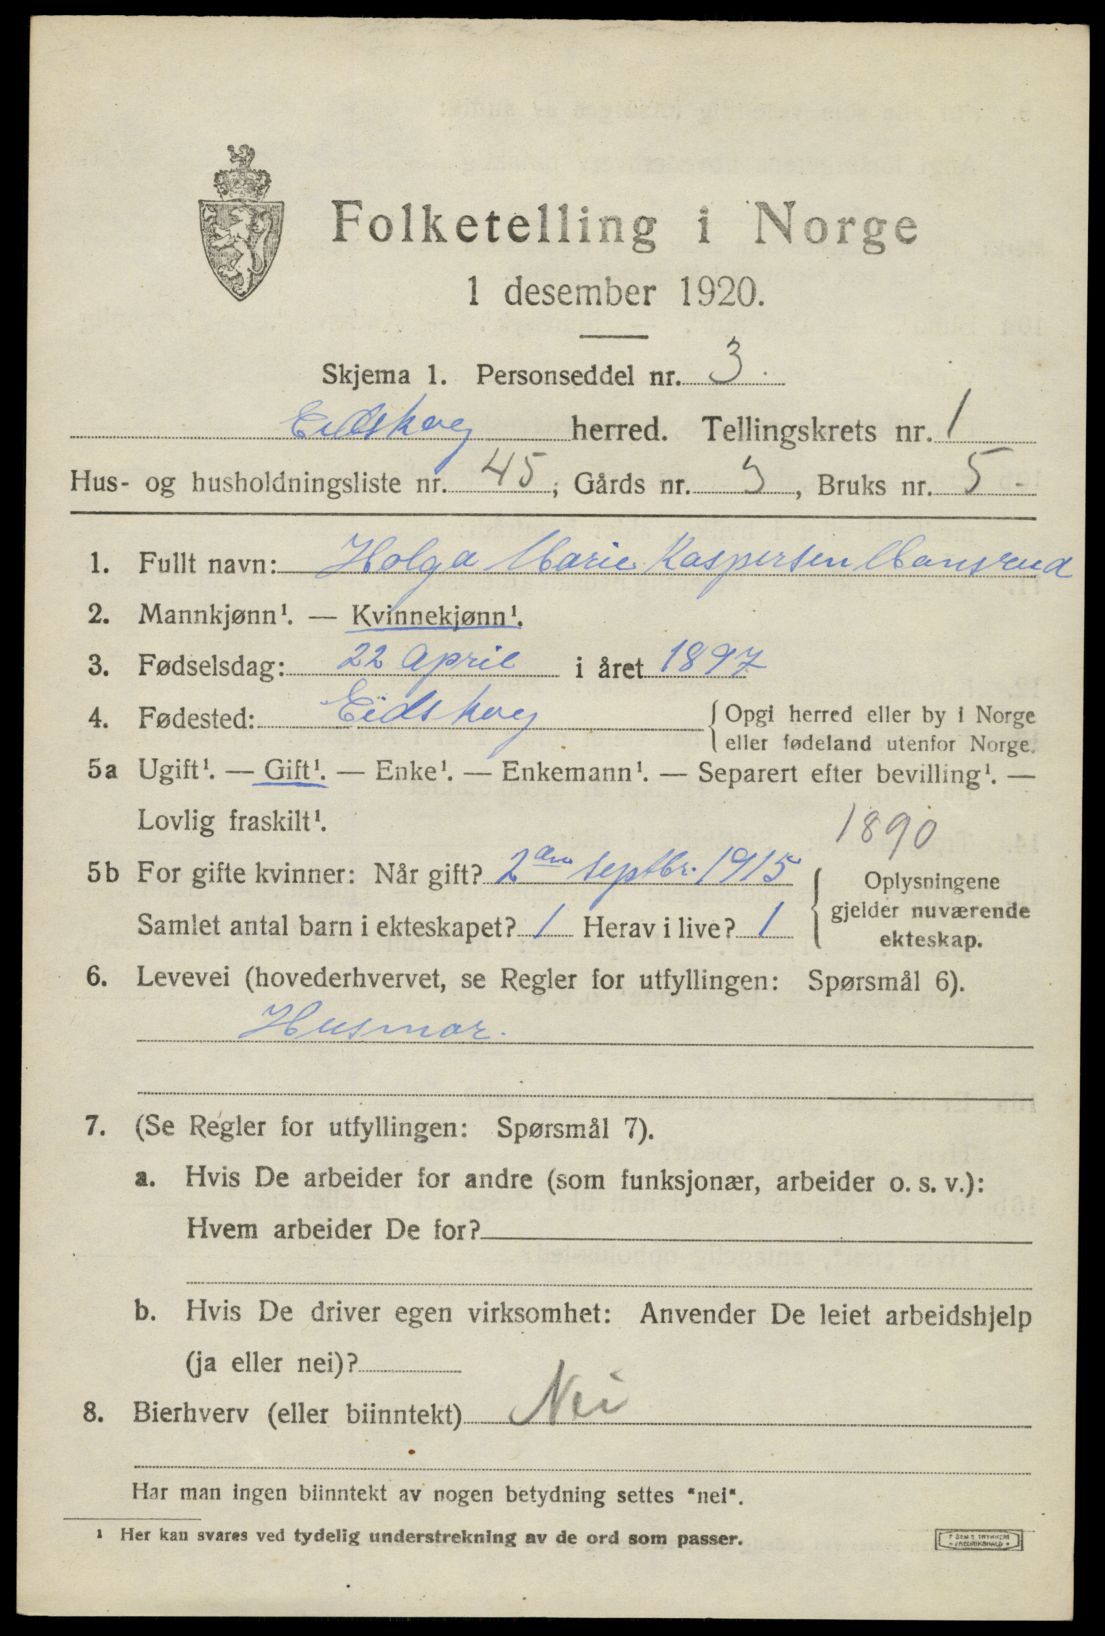 Folketelling i Norge
1 desember 1920.
Skjema 1. Personseddel nr. 3.
Eidskog herred. Tellingskrets nr. 1
Hus- og husholdningsliste nr. 45, Gårds nr. 3, Bruks nr. 5.
1. Fullt navn: Holga Marie Kaspersen Mansrud
2. Mannkjønn¹. — Kvinnekjønn¹.
3. Fødselsdag: 22 April i året 1897
4. Fødested: Eidskog {Opgi herred eller by i Norge
eller fødeland utenfor Norge.
5a Ugift¹. — Gift¹. — Enke¹. — Enkemann¹. — Separert efter bevilling¹. —
Lovlig fraskilt¹.
1890
5b For gifte kvinner: Når gift? 2den septbr. 1915
Samlet antal barn i ekteskapet? 1 Herav i live? 1
{Oplysningene
gjelder nuværende
ekteskap.
6. Levevei (hovederhvervet, se Regler for utfyllingen: Spørsmål 6).
Husmor.
7. (Se Regler for utfyllingen: Spørsmål 7).
a. Hvis De arbeider for andre (som funksjonær, arbeider o. s. v.):
Hvem arbeider De for?
b. Hvis De driver egen virksomhet: Anvender De leiet arbeidshjelp
(ja eller nei)?
8. Bierhverv (eller biinntekt) Nei
Har man ingen biinntekt av nogen betydning settes "nei".
¹ Her kan svares ved tydelig understrekning av de ord som passer.